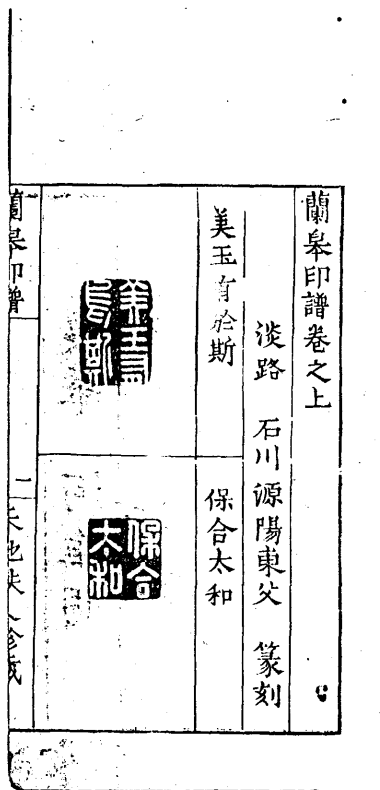 蘭皋印譜卷之上
淡路 石川源陽東父 篆刻
美玉有於斯
保合太和
保合太和
蘭皋印譜
一